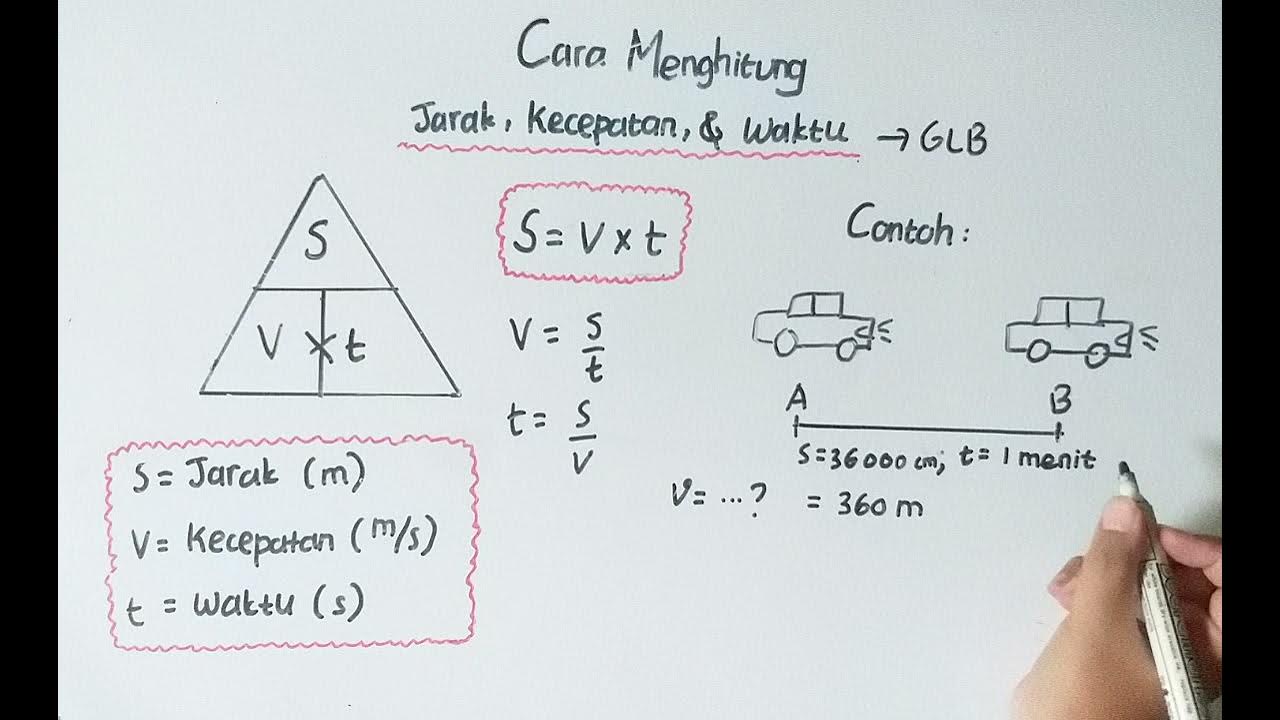 Cara Menghitung
Jarak, Kecepatan, & Waktu → GLB
S
V × t
S = V × t
V = S/t
t = S/V
S = Jarak (m)
V = Kecepatan (m/s)
t = Waktu (s)
Contoh:
A
B
S = 36000 cm; t = 1 menit
V = ...? = 360 m